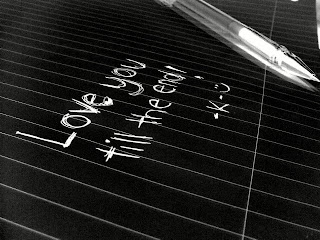 Love you
till the end!
-K :)